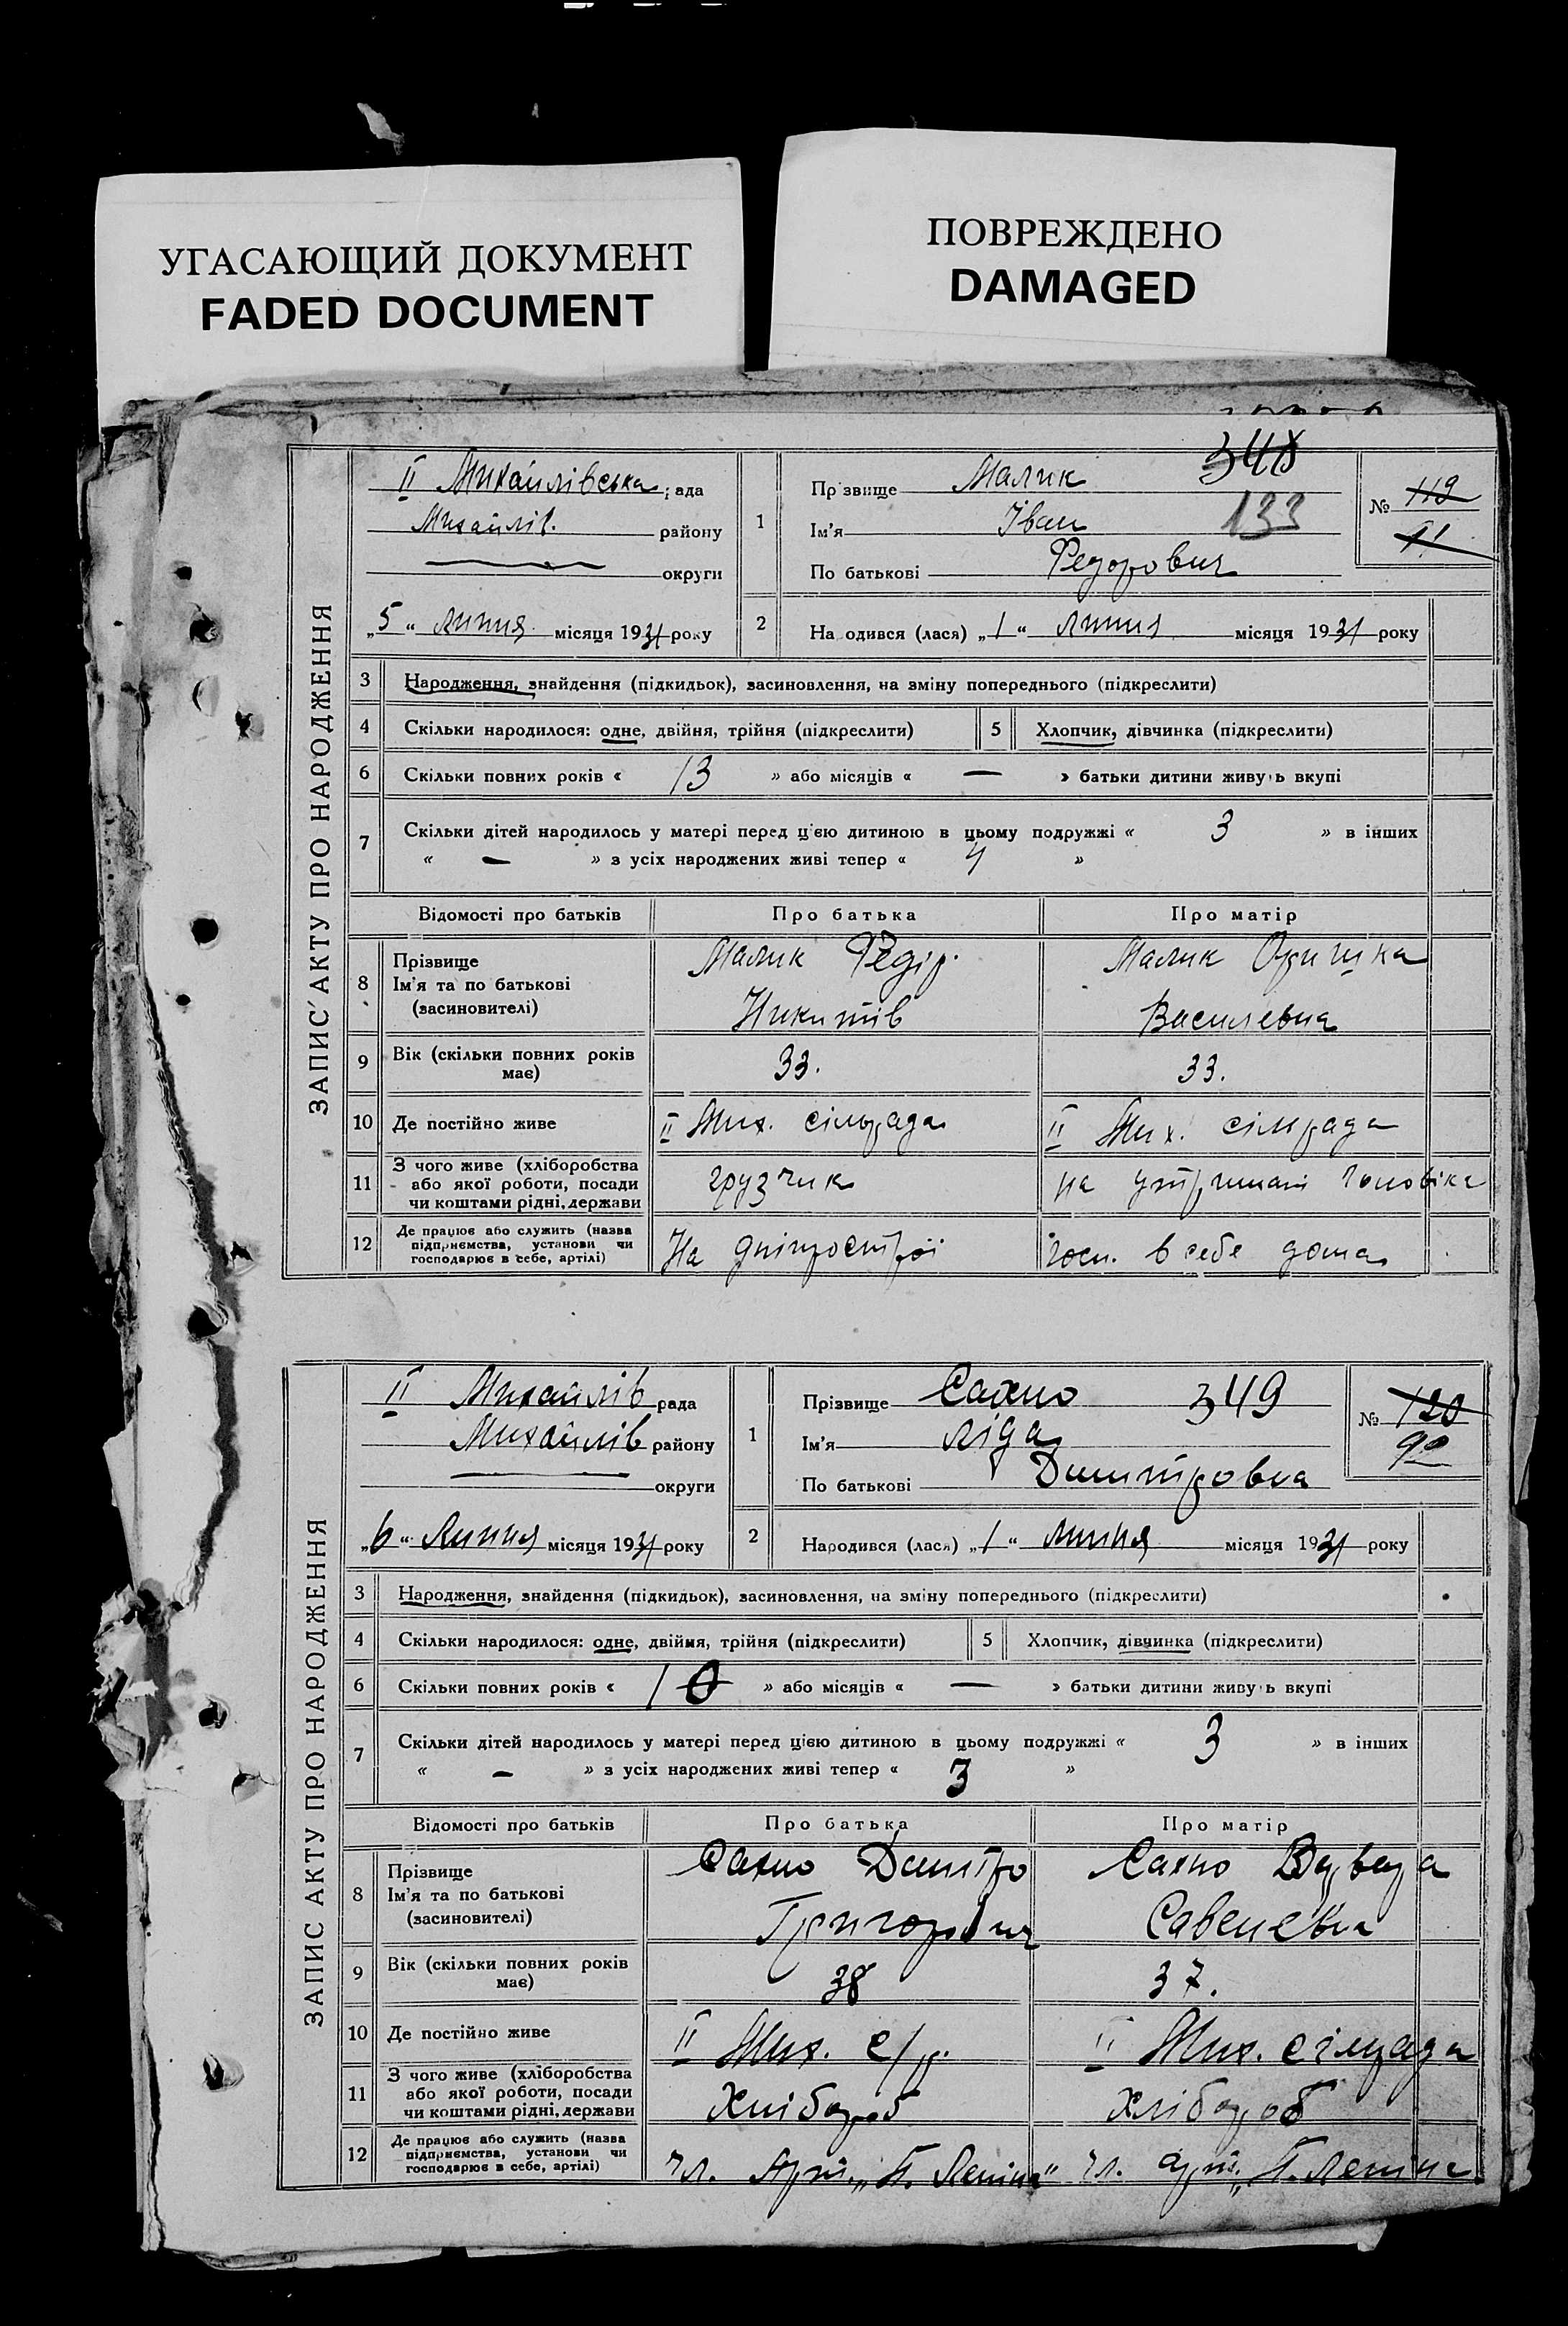 УГАСАЮЩИЙ ДОКУМЕНТ
FADED DOCUMENT
ПОВРЕЖДЕНО
DAMAGED
ЗАПИС АКТУ ПРО НАРОДЖЕННЯ
II Михайлівська рада
Михайлів. району
округи
„5“ липня місяця 1931 року
1
Пр звище Малик 348
Ім'я Іван 133
По батькові Федорович
№ 119
91
2 На одився (лася) „1“ липня місяця 1931 року
3 Народження, знайдення (підкидьок), засиновлення, на зміну попереднього (підкреслити)
4 Скільки народилося: одне, двійня, трійня (підкреслити) 5 Хлопчик, дівчинка (підкреслити)
6 Скільки повних років « 13 » або місяців « — » батьки дитини живу ь вкупі
7 Скільки дітей народилось у матері перед цією дитиною в цьому подружжі « 3 » в інших
« — » з усіх народжених живі тепер « 4 »
Відомості про батьків Про батька Про матір
8 Прізвище Ім'я та по батькові (засиновителі) Малик Федір. Никитів Малик Оришка Василевна
9 Вік (скільки повних років має) 33. 33.
10 Де постійно живе II Мих. сільрада II Мих. сільрада
11 З чого живе (хліборобства або якої роботи, посади чи коштами рідні, держави грузчик на утриманні чоловіка
12 Де працює або служить (назва підприємства, установи чи господарює в себе, артілі) На дніпрострої госп. в себе дома
ЗАПИС АКТУ ПРО НАРОДЖЕННЯ
II Михайлів рада
Михайлів району
округи
„6“ Липня місяця 1931 року
1
Прізвище Сахно 349
Ім'я Ліда
По батькові Дмитровна
№ 120
92
2 Народився (лася) „1“ липня місяця 1931 року
3 Народження, знайдення (підкидьок), засиновлення, на зміну попереднього (підкреслити)
4 Скільки народилося: одне, двійня, трійня (підкреслити) 5 Хлопчик, дівчинка (підкреслити)
6 Скільки повних років « 10 » або місяців « — » батьки дитини живу ь вкупі
7 Скільки дітей народилось у матері перед цією дитиною в цьому подружжі « 3 » в інших
« — » з усіх народжених живі тепер « 3 »
Відомості про батьків Про батька Про матір
8 Прізвище Ім'я та по батькові (засиновителі) Сахно Дмитро Григорович Сахно Варвара Савелевна
9 Вік (скільки повних років має) 38 37.
10 Де постійно живе II Мих. с/р. II Мих. сілрада
11 З чого живе (хліборобства або якої роботи, посади чи коштами рідні, держави Хлібороб Хлібороб
12 Де працює або служить (назва підприємства, установи чи господарює в себе, артілі) чл. Арт. „П. Леніна“ чл. арт. „П. Леніна